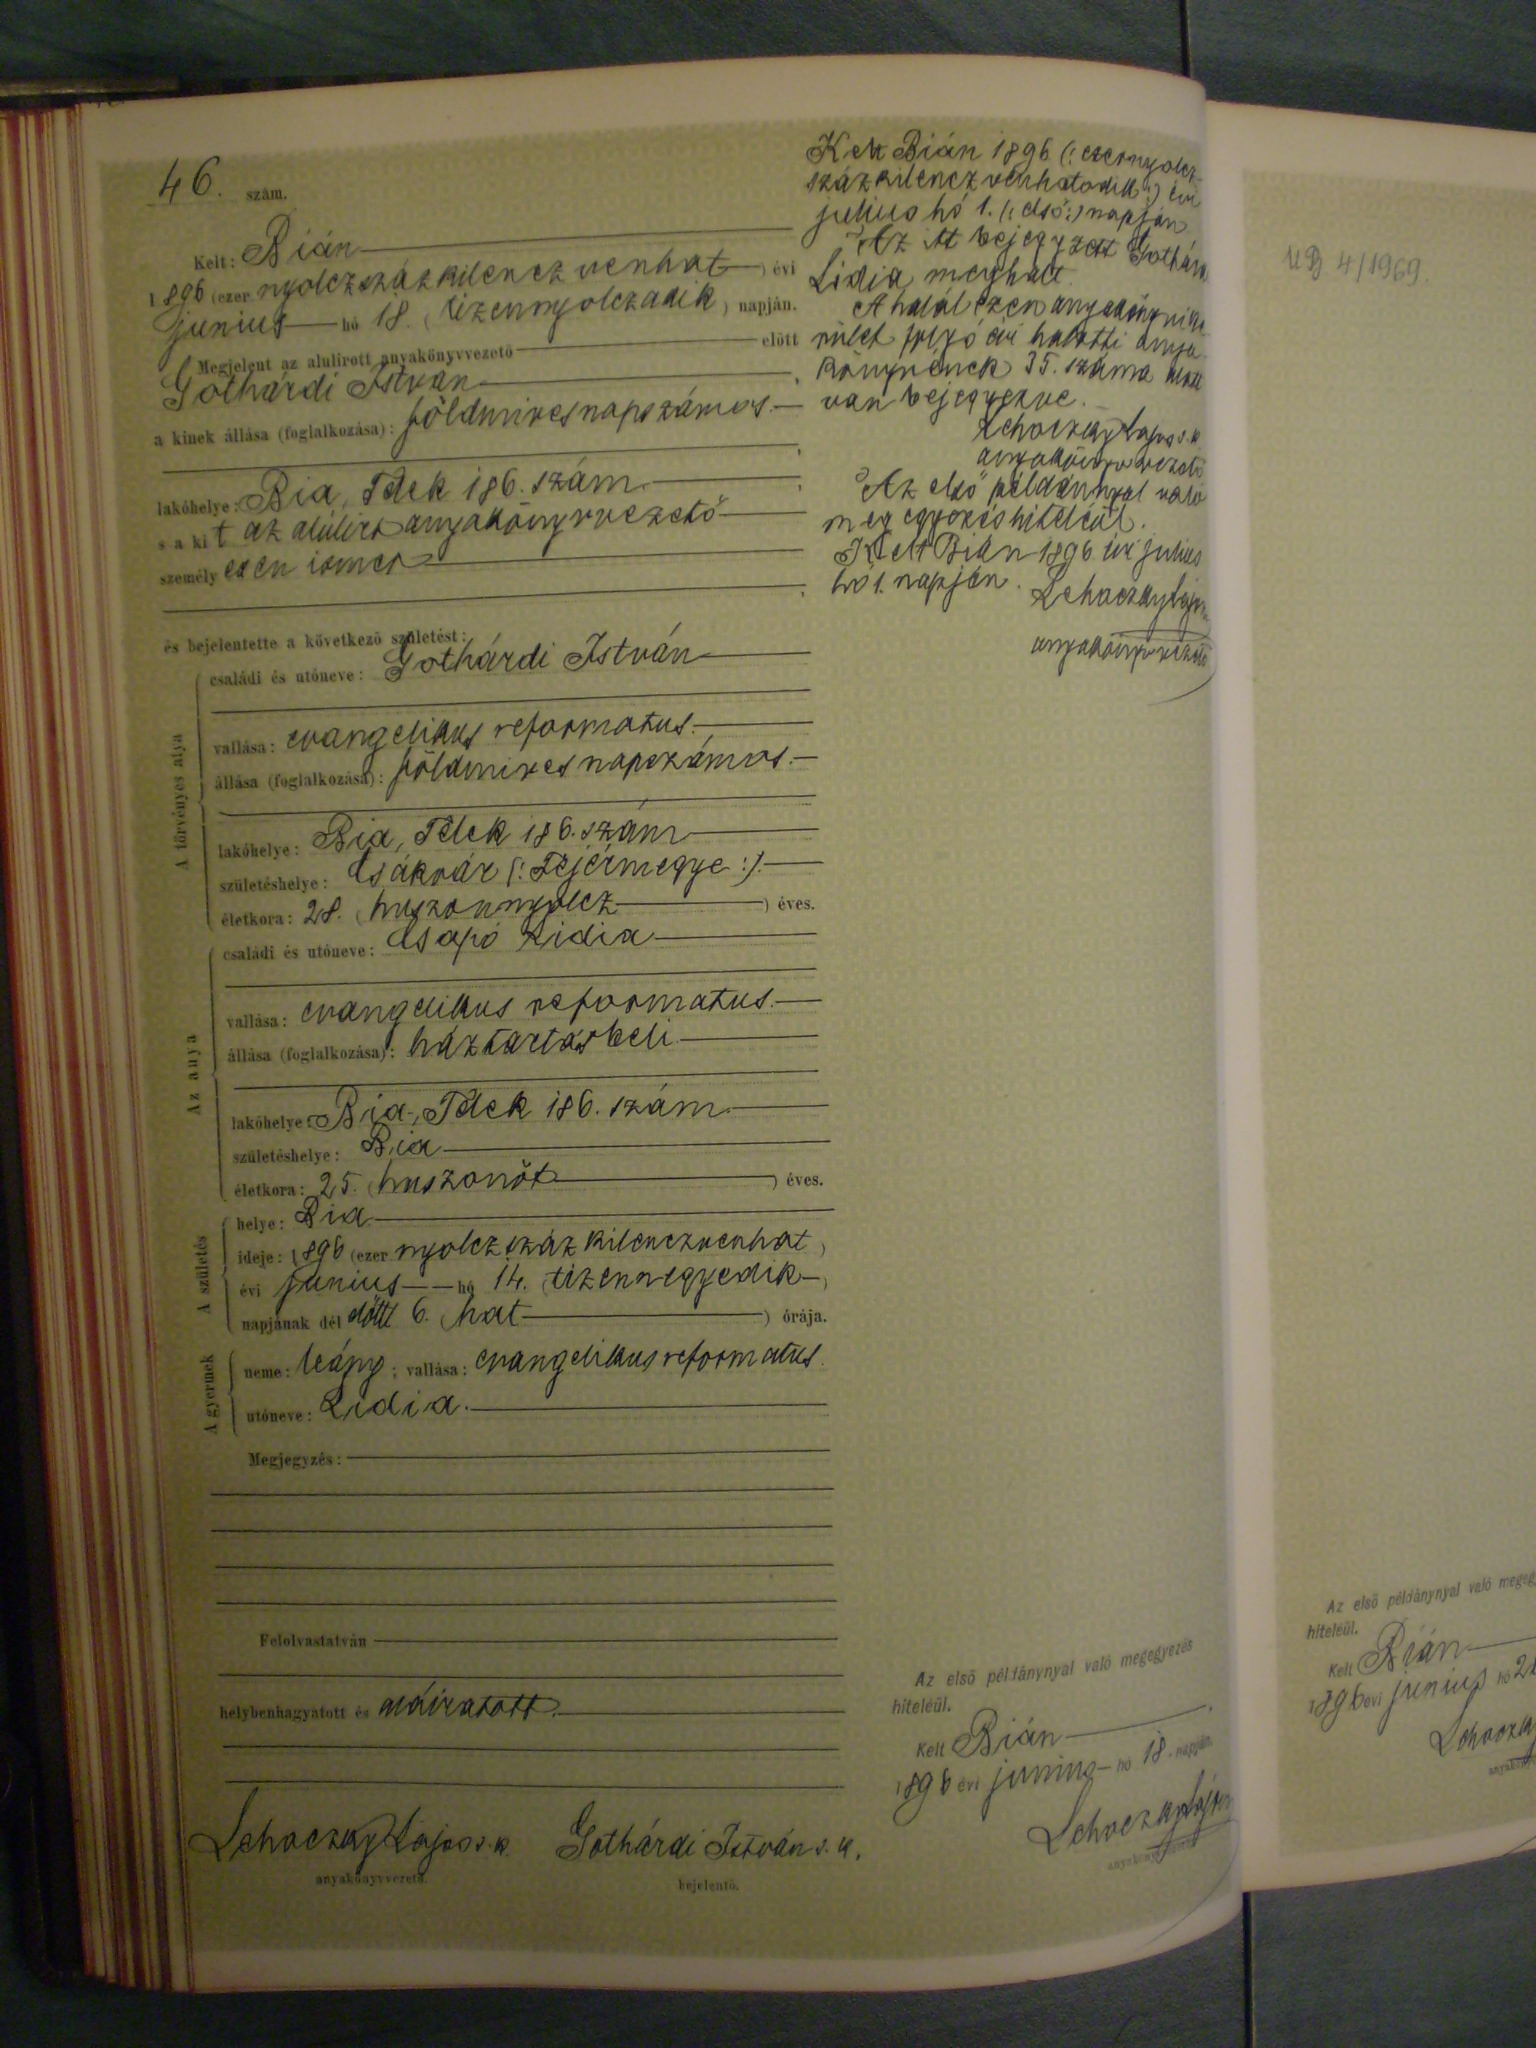 46. szám.
Kelt: Bián
1896 (ezer nyolczszázkilenczvenhat) évi
junius hó 18. (tizennyolczadik) napján.
Megjelent az alulirott anyakönyvvezető előtt
Gothárdi István
a kinek állása (foglalkozása): földmivesnapszámos.
lakóhelye: Bia, Telek 186. szám.
s a kit az alúlirt anyakönyvvezető
személyesen ismer
és bejelentette a következő születést:
A törvényes atya
családi és utóneve: Gothárdi István
vallása: evangelikus reformatus.
állása (foglalkozása): földmivesnapszámos.
lakóhelye: Bia, Telek 186. szám
születéshelye: Csákvár (: Fejérmegye :).
életkora: 28. (huszonnyolcz) éves.
Az anya
családi és utóneve: Csapó Lidia
vallása: evangelikus reformatus.
állása (foglalkozása): háztartásbeli.
lakóhelye: Bia, Telek 186. szám.
születéshelye: Bia
életkora: 25. (huszonöt) éves.
A születés
helye: Bia
ideje: 1896 (ezer nyolczszáz kilenczvenhat)
évi junius hó 14. (tizennegyedik)
napjának dél előtt 6. (hat) órája.
A gyermek
neme: leány; vallása: evangelikus reformatus.
utóneve: Lidia.
Megjegyzés:
Felolvastatván
helybenhagyatott és aláiratott.
Lehoczky Lajos s. k. Gothárdi István s. k.
anyakönyvvezető. bejelentő.
Kelt Bián 1896 (: ezernyolcz-
százkilenczvenhatodik :) évi
julius hó 1. (: első :) napján
Az itt bejegyzett Gothárdi
Lidia meghalt.
A halál ezen anyakönyvi ke-
rület folyó évi halotti anya-
könyvének 35. száma alatt
van bejegyezve.
Lehoczky Lajos s. k.
anyakönyvvezető
Az első példánnyal való
megegyezés hiteléűl.
Kelt Bián 1896 évi julius
hó 1. napján. Lehoczky Lajos
anyakönyvvezető
Az első példánynyal való megegyezés
hiteléül.
Kelt Bián
1896 évi junius hó 18. napján.
Lehoczky Lajos
anyakönyvvezető
UB 4/1969.
Az első példánynyal való
hiteléül.
Kelt Bián
1896 évi junius hó